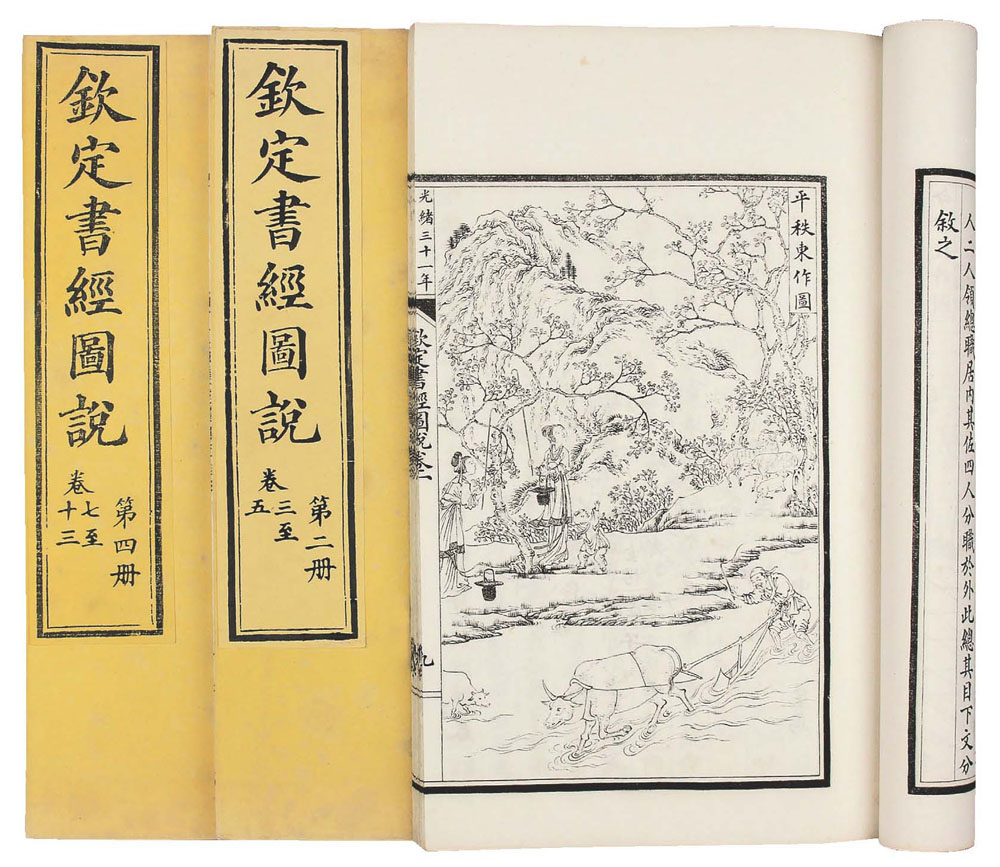 欽定書經圖說
第四冊
卷七至
十三
欽定書經圖說
第二冊
卷三至
五
平秩東作圖
光緒三十一年
欽定書經圖說卷一
九
人二人領總職居内其佐四人分職於外此總其目下文分
敘之